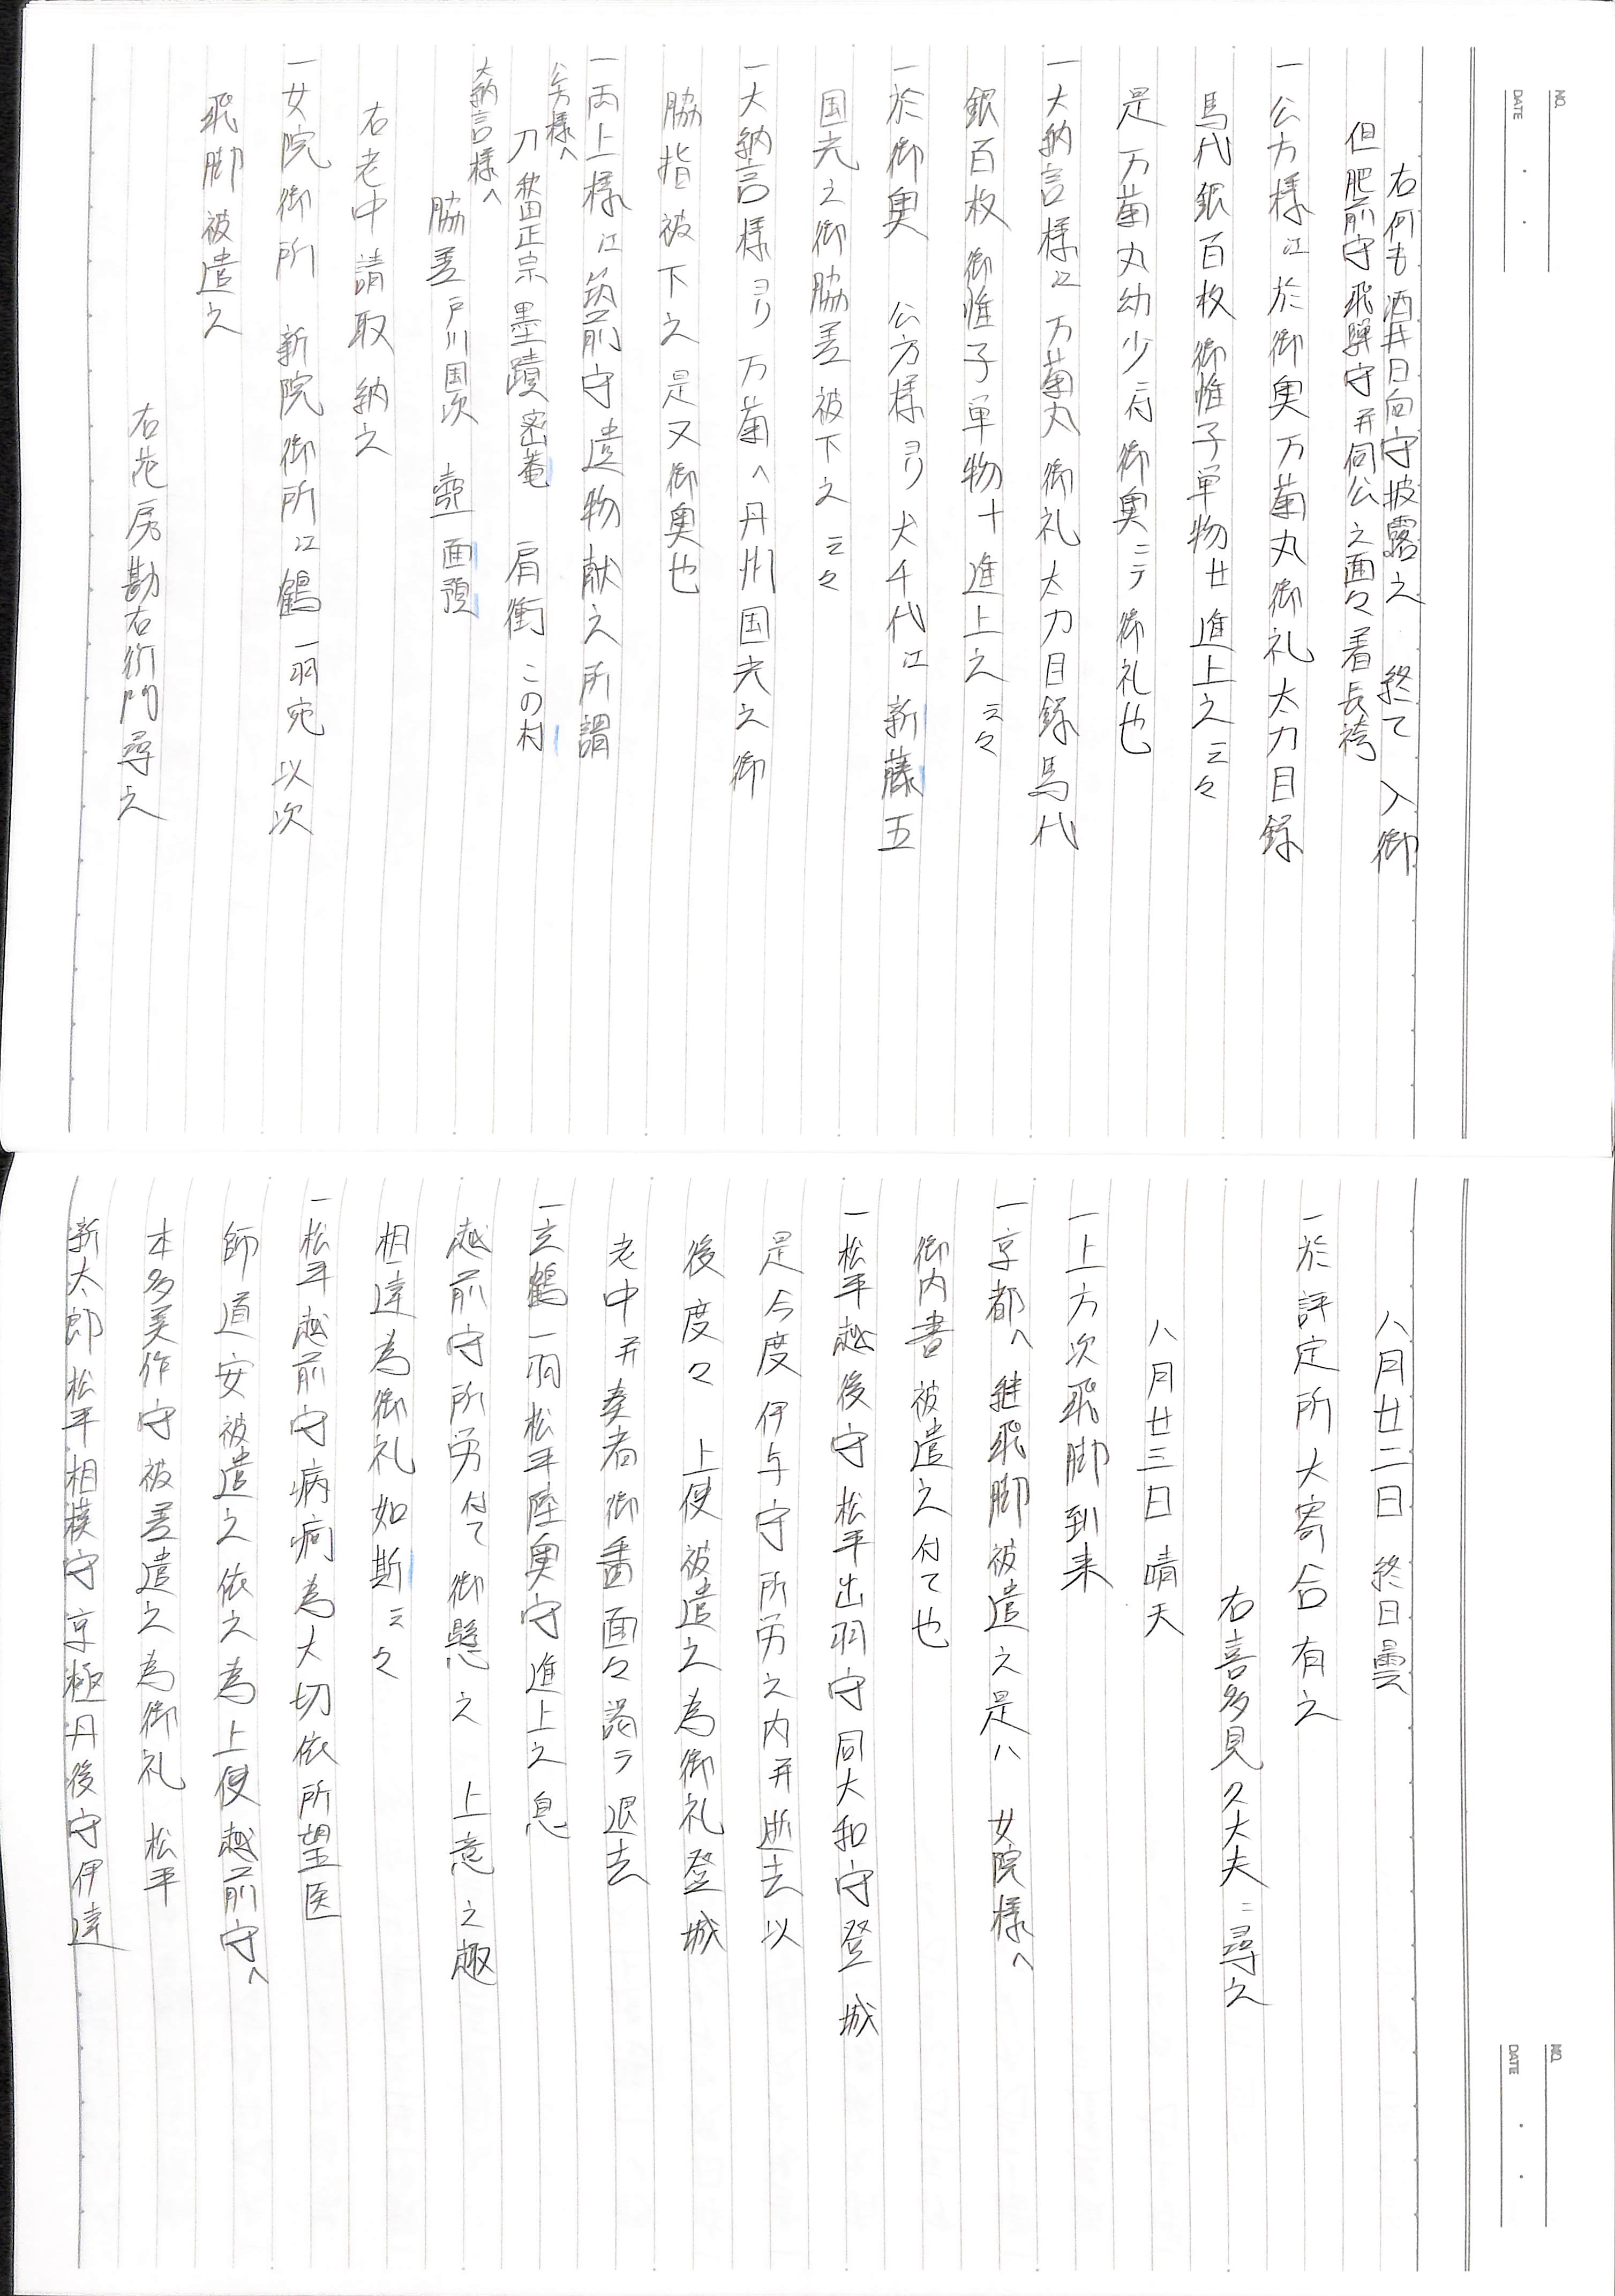 NO.
DATE
右何も酒井日向守披露之 終て入御
但肥前守飛騨守并伺公之面々着長袴
一公方様江於御奥万菊丸御礼太刀目録
馬代銀百枚御帷子単物廿進上之云々
是万菊丸幼少ニ付御奥ニテ御礼也
一大納言様江万菊丸御礼太刀目録馬代
銀百枚御帷子単物十進上之云々
一於御奥 公方様ヨリ犬千代江新藤五
国光之御脇差被下之云々
一大納言様ヨリ万菊へ丹州国光之御
脇指被下之是又御奥也
一両上様江筑前守遺物献之所謂
公方様へ
刀 秋田正宗 墨蹟密菴 肩衝この村
大納言様へ
脇差戸川国次 壷面預
右老中請取納之
一女院御所 新院御所江鶴一羽宛以次
飛脚被遣之
右花房勘右衛門尋之
NO.
DATE
八月廿二日 終日曇
一於評定所大寄合有之
右喜多見久大夫ニ尋之
八月廿三日 晴天
一上方次飛脚到来
一京都へ継飛脚被遣之是ハ 女院様へ
御内書被遣之付て也
一松平越後守松平出羽守同大和守登城
是今度伊与守所労之内并逝去以
後度々 上使被遣之為御礼登城
老中并奏者御番面々謁ラ退去
一玄鶴一羽松平陸奥守進上之息
越前守所労付て御懸之 上意之趣
相達為御礼如斯云々
一松平越前守病痾為大切依所望医
師道安被遣之依之為上使越前守へ
本多美作守被差遣之為御礼 松平
新太郎松平相模守京極丹後守伊達